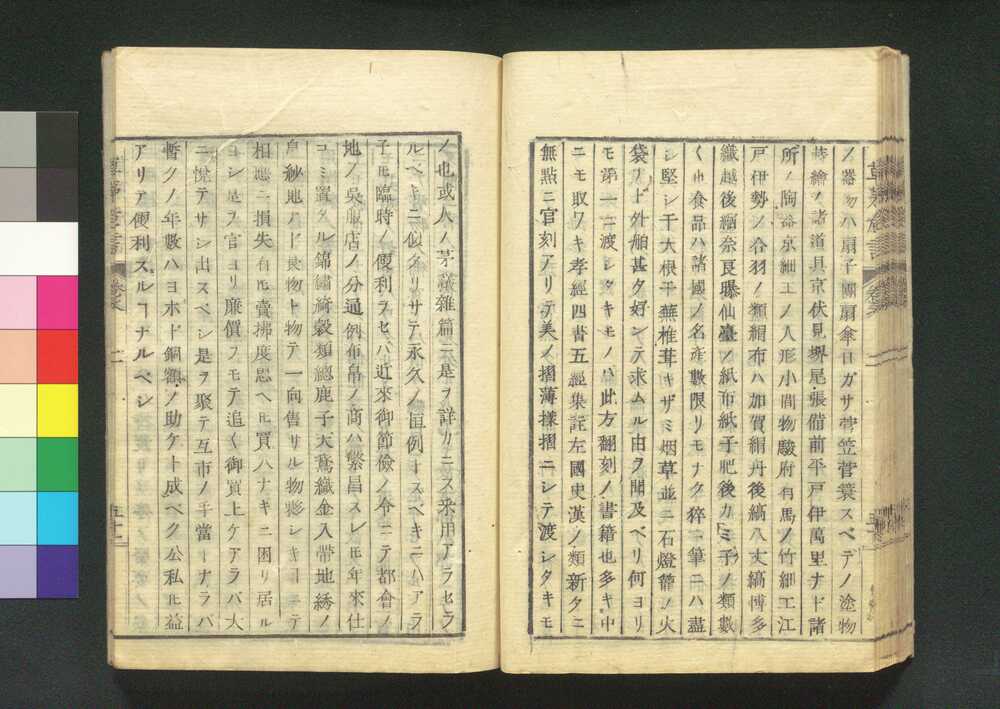 ノ器物ハ扇子團扇傘日ガサ菅笠菅簑スベテノ塗物
蒔繪ノ諸道具京伏見堺尾張備前平戸伊萬里ナド諸
所ノ陶器京細工ノ人形小間物駿府有馬ノ竹細工江
戸伊勢ノ合羽ノ類絹布ハ加賀絹丹後縞八丈縞博多
織越後縮奈良曝仙臺ノ紙布紙子肥後カミ子ノ類數
く也食品ハ諸國ノ名産數限リモナク猝ニ筆ニハ盡
シ堅シ干大根干蕪椎茸キザミ烟草並ニ石燈籠ノ火
袋ナド外舶甚タ好ンデ求ムル由ヲ聞及ベリ何ヨリ
モ第一ニ渡シタキモノハ此方翻刻ノ書籍也多キ中
ニモ取ワキ孝經四書五經集註左國史漢ノ類新タニ
無點ニ官刻アリテ美ノ摺薄樣摺ニシテ渡シタキモ
ノ也或人ノ茅籤雜篇ニ是ヲ詳カニス采用アラセラ
ルベキニ似タリサテ永久ノ恒例トスベキニハアラ
子ヒ臨時ノ便利ヲセバ近來御節儉ノ令ニテ都會ノ
地ノ吳服店ノ分通例布帛ノ商ハ繁昌スレヒ年來仕
コミ置タル錦繡綺縠類總鹿子天鵞織金入帶地綉ノ
帛紗地ナド長物ト物テ一向售リル物夥シキヿニテ
相應ニ損失有ヒ賣拂度思ヘヒ買人ナキニ困リ居ル
ヨシ是ヲ官ヨリ廉價ヲモテ追く御買上ケアラバ大
ニ悅テサシ出スベシ是ヲ聚テ互市ノ手當トナラバ
暫クノ年數ハヨホド銅額ノ助ケト成ベク公私ヒ益
アリテ便利スルヿナルベシ